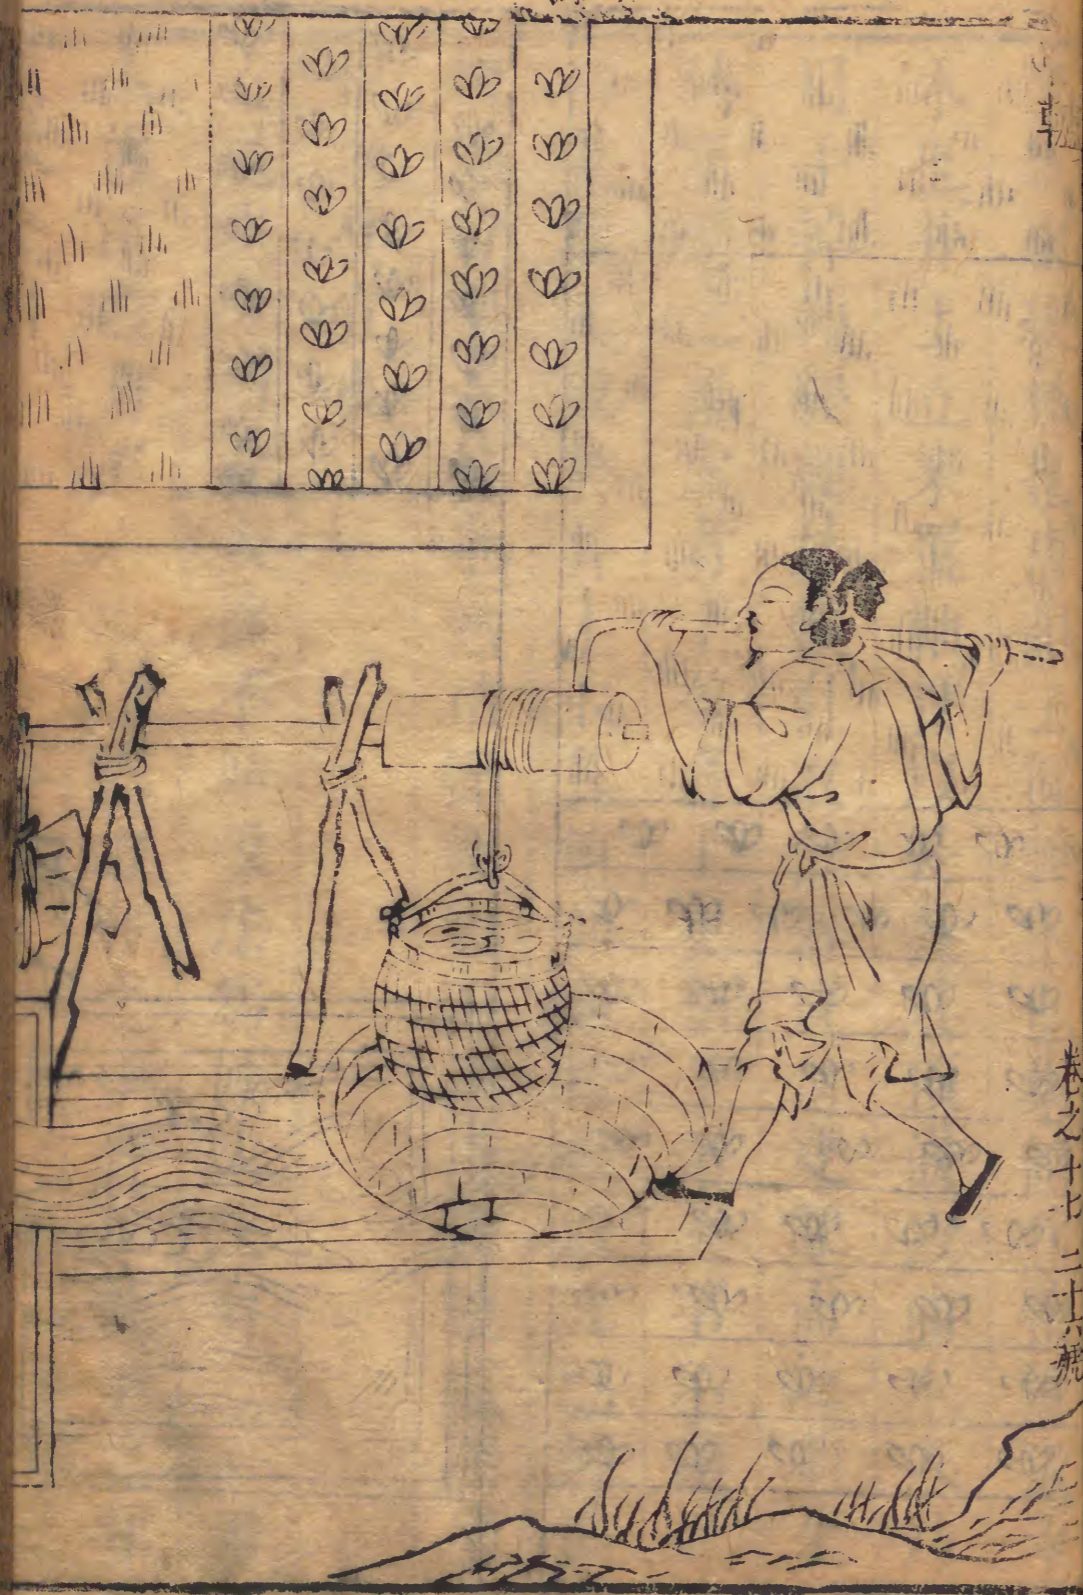 卷之十七 二十六號